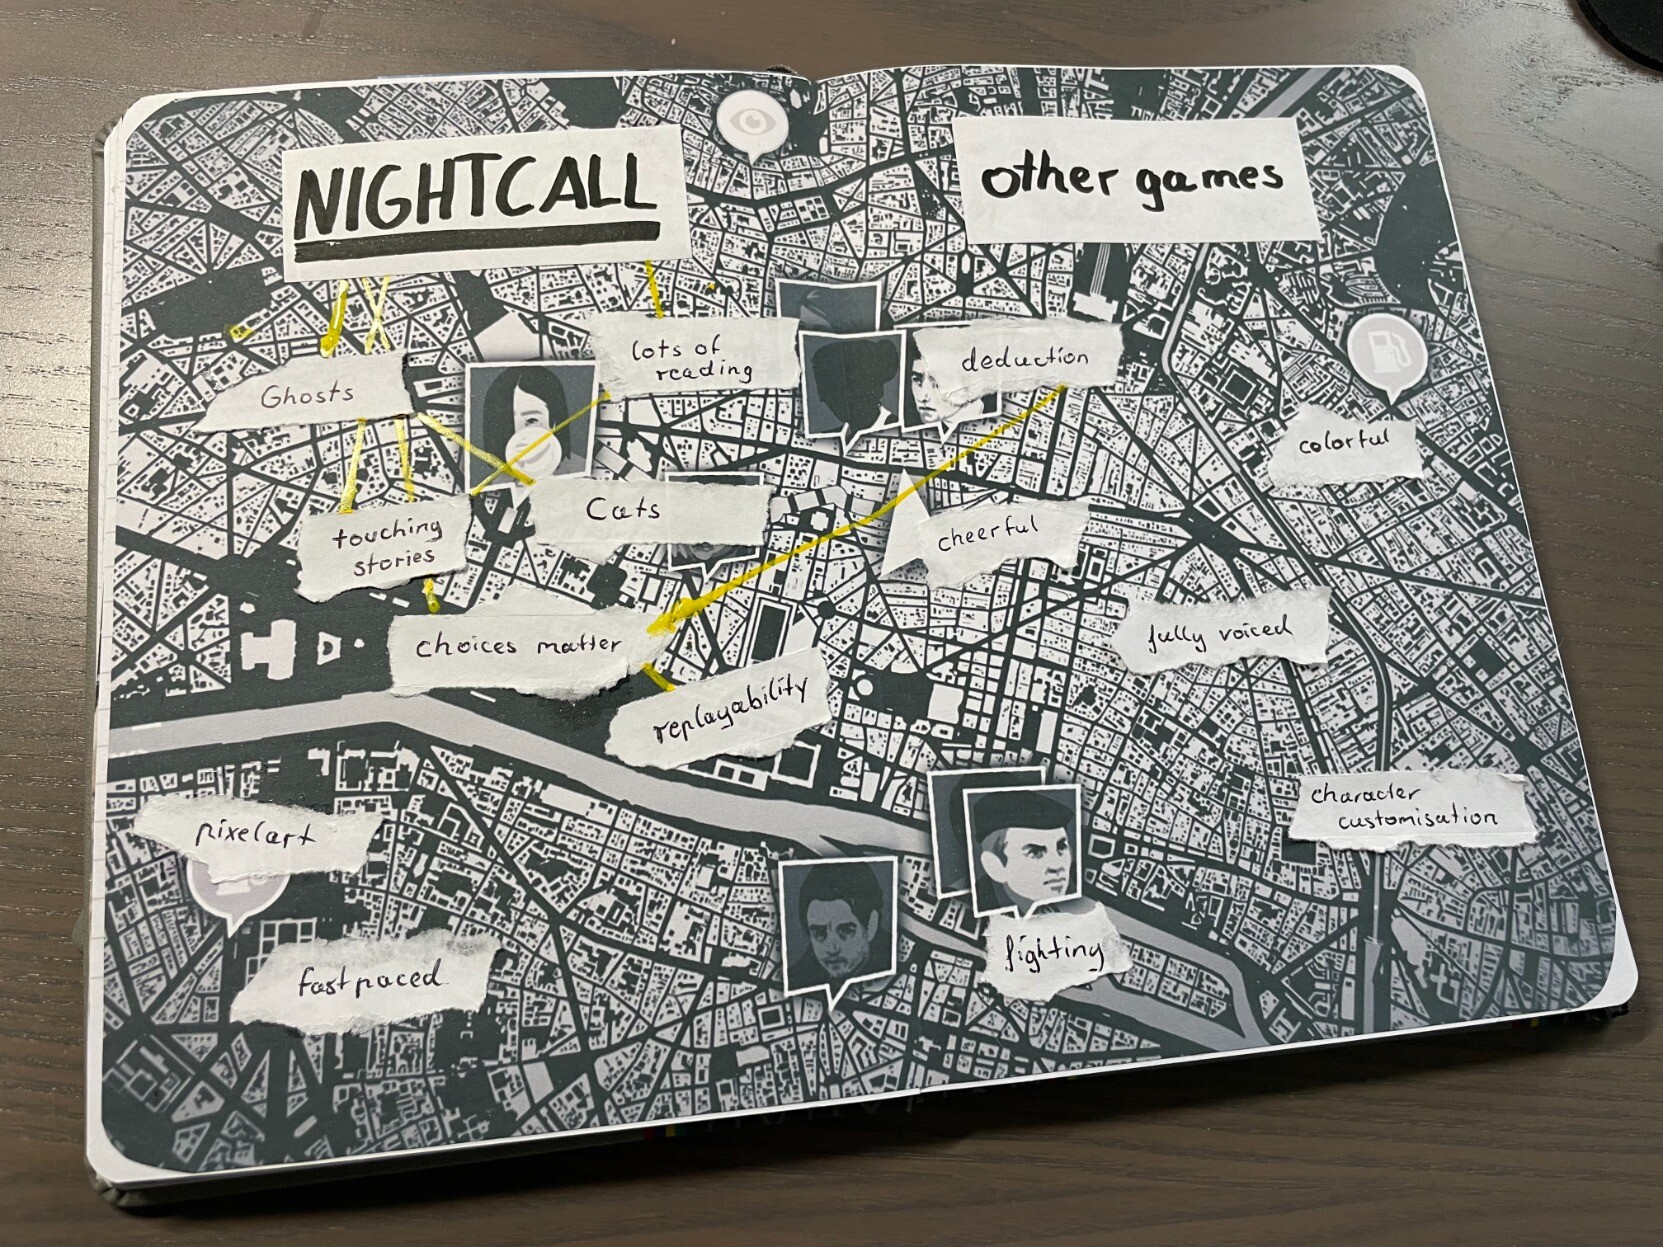 NIGHTCALL
other games
Ghosts
lots of
reading
deduction
colorful
touching
stories
Cats
cheerful
choices matter
fully voiced
replayability
pixelart
character
customisation
fast paced
fighting